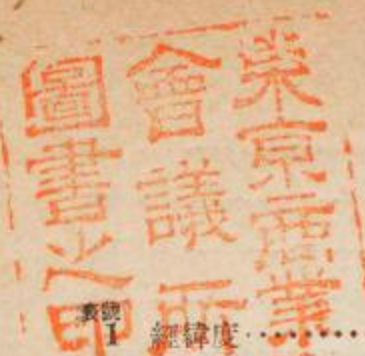 東京商業
會議所
圖書之印
表號
1 經緯度………